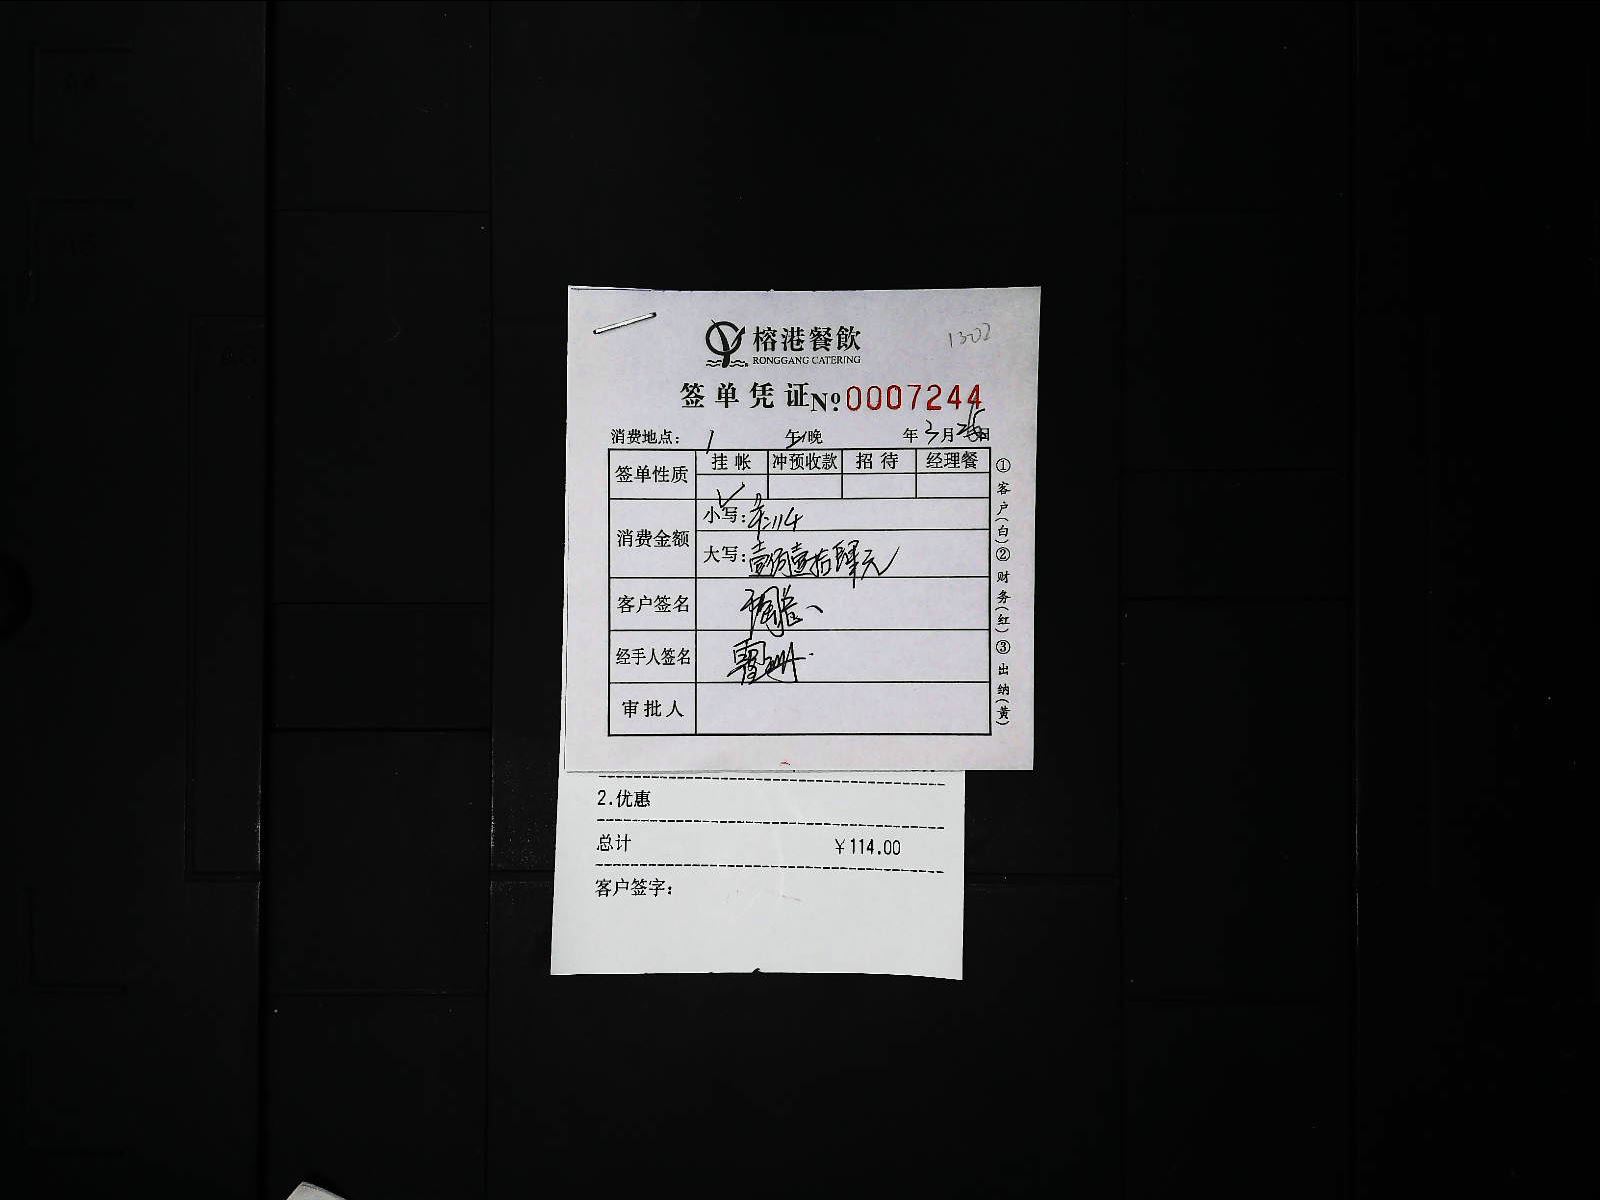 榕港餐飲
RONGGANG CATERING
1302
签单凭证 №0007244
消费地点： 1 午/晚 年3月日
签单性质 挂帐 冲预收款 招待 经理餐
✓
消费金额 小写：114
大写：壹佰壹拾肆元
客户签名
经手人签名
审批人
①客户（白）②财务（红）③出纳（黄）
2.优惠
总计 ￥114.00
客户签字：